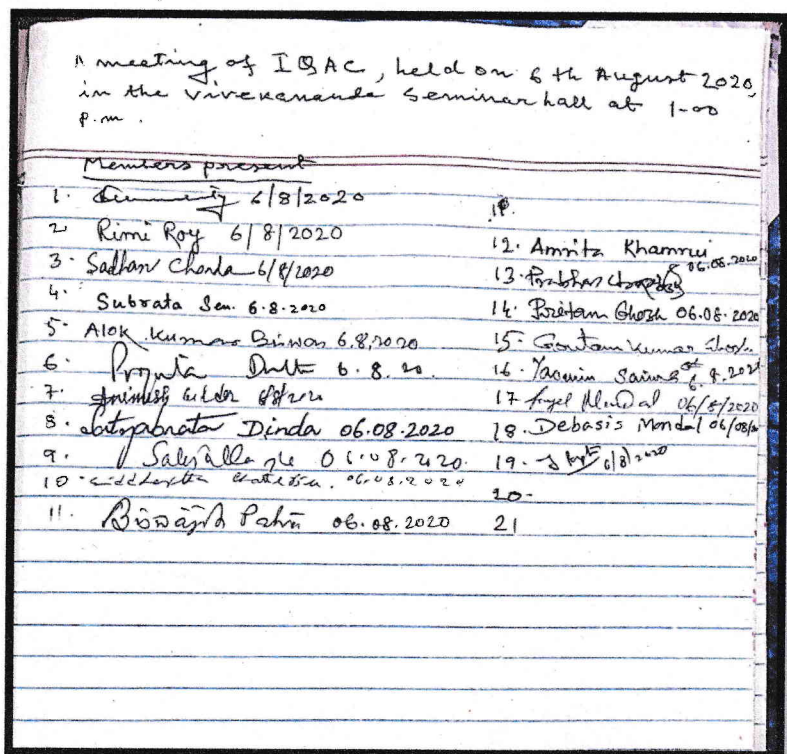 A meeting of IQAC, held on 6th August 2020,
in the Vivekananda Seminar hall at 1-00
p.m.
Members present
1. 6/8/2020
2 Rimi Roy 6/8/2020
3. Sadhan Chanda 6/8/2020
4. Subrata Sen. 6.8.2020
5. Alok Kumar Biswas 6.8.2020
6. Dutta 6.8.20
7. Animesh 6/8/2020
8. Satyabrata Dinda 06.08.2020
9. 06.08.2020.
10. Siddhartha Chatterjee. 06.08.2020
11. Biswajit 06.08.2020
12. Amrita Khamrui 06.08.2020
13. Prabhas
14. Pritam Ghosh 06.08.2020
15. Goutam Kumar Ghosh
16. Yasmin 6.8.2020
17 06/8/2020
18. Debasis Mondal 06/08/20
19. 6/8/2020
20-
21